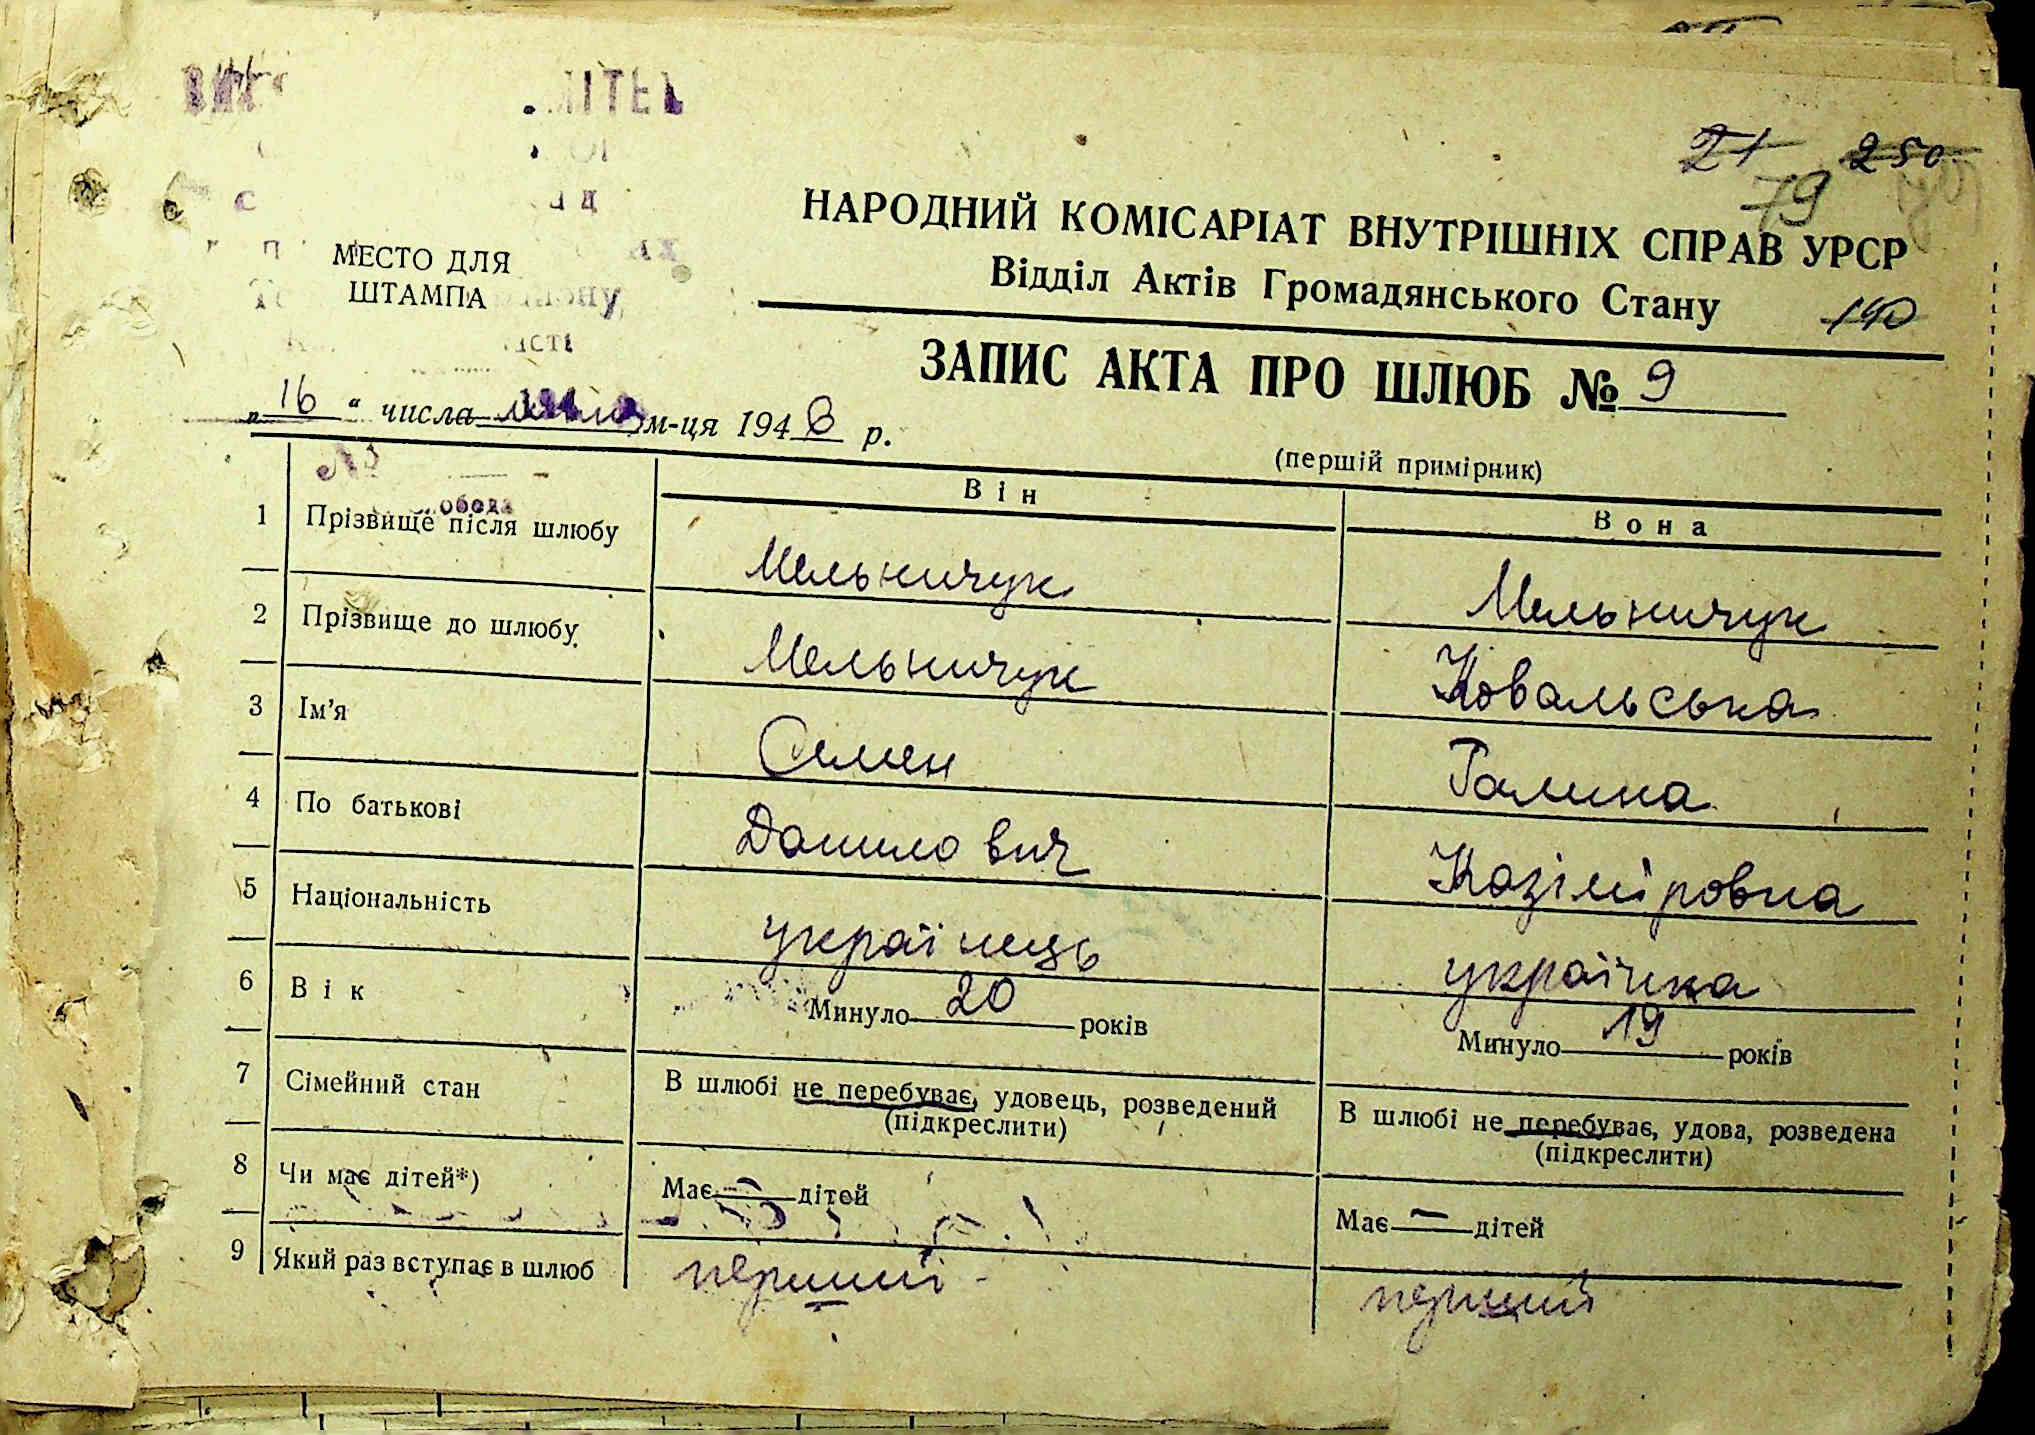 21 250
79
НАРОДНИЙ КОМІСАРІАТ ВНУТРІШНІХ СПРАВ УРСР
Відділ Актів Громадянського Стану
140
МЕСТО ДЛЯ
ШТАМПА
ЗАПИС АКТА ПРО ШЛЮБ № 9
„16“ числа м-ця 1946 р.
(першій примірник)
Він Вона
1 Прізвище після шлюбу Мельничук Мельничук
2 Прізвище до шлюбу Мельничук Ковальська
3 Ім'я Семен Галина
4 По батькові Данилович Казіміровна
5 Національність українець українка
6 Вік Минуло 20 років Минуло 19 років
7 Сімейний стан В шлюбі не перебуває, удовець, розведений В шлюбі не перебуває, удова, розведена
(підкреслити) (підкреслити)
8 Чи має дітей*) Має — дітей Має — дітей
9 Який раз вступає в шлюб перший перший